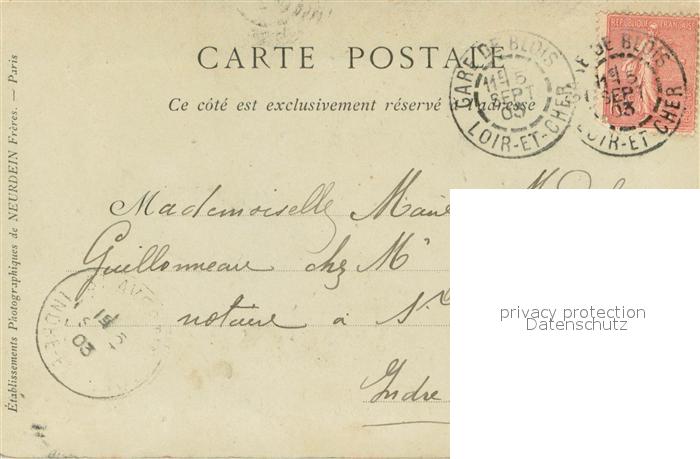 CARTE POSTALE
Ce côté est exclusivement réservé à l'adresse
Établissements Photographiques de NEURDEIN Frères. — Paris
RÉPUBLIQUE FRANÇAISE
GARE DE BLOIS
15
SEPT
03
LOIR-ET-CHER
DE BLOIS
15
SEPT
03
LOIR-ET-CHER
Mademoiselle Marie
Guillonneau chez Mr
notaire à St
Indre
03
privacy protection
Datenschutz